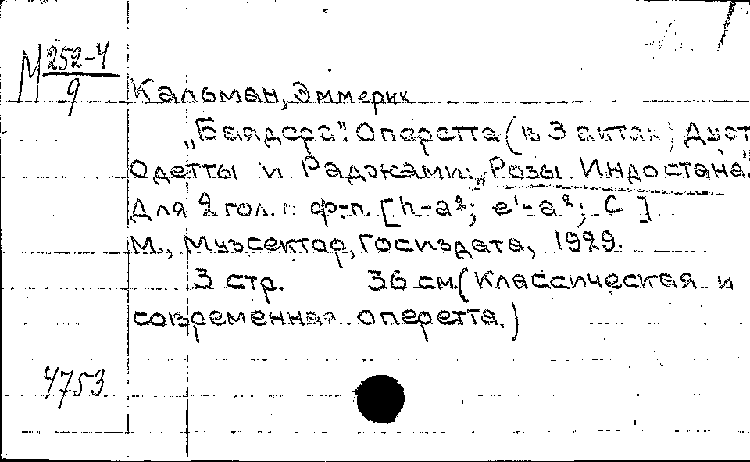 1
М 252-4
9
Кальман, Эммерик
„Баядера". Оперетта (в 3 актах) Дуэт
Одетты и Раджами: „Розы Индостана".
Для 2 гол. с ф-п. [h-a²; e¹-a²; C]
М., Музсектор, Госиздата, 1929.
3 стр. 36 см. (Классическая и
современная оперетта.)
4753